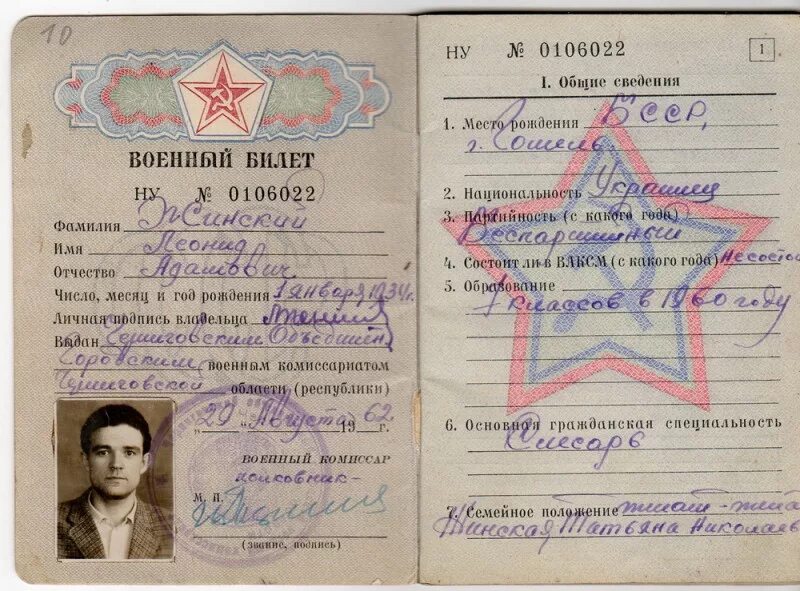 10
ВОЕННЫЙ БИЛЕТ
НУ № 0106022
Фамилия Жинский
Имя Леонид
Отчество Адамович
Число, месяц и год рождения 1 января 1934г.
Личная подпись владельца
Выдан Черниговским Объедин.
Городским военным комиссариатом
Черниговской области (республики)
„29" Августа 1962 г.
ВОЕННЫЙ КОМИССАР
полковник-
М. П.
(звание, подпись)
НУ № 0106022 1
I. Общие сведения
1. Место рождения БССР,
г. Гомель.
2. Национальность Украинец
3. Партийность (с какого года)
Беспартийный
4. Состоит ли в ВЛКСМ (с какого года) Не состоит
5. Образование
7 классов в 1960 году
6. Основная гражданская специальность
Слесарь
7. Семейное положение женат - жена
Жинская Татьяна Николаев